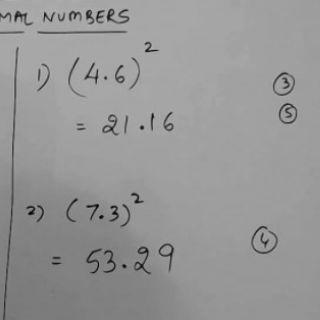 MAL NUMBERS
1) (4.6)² ③
= 21.16 ⑤
2) (7.3)²
= 53.29 ④